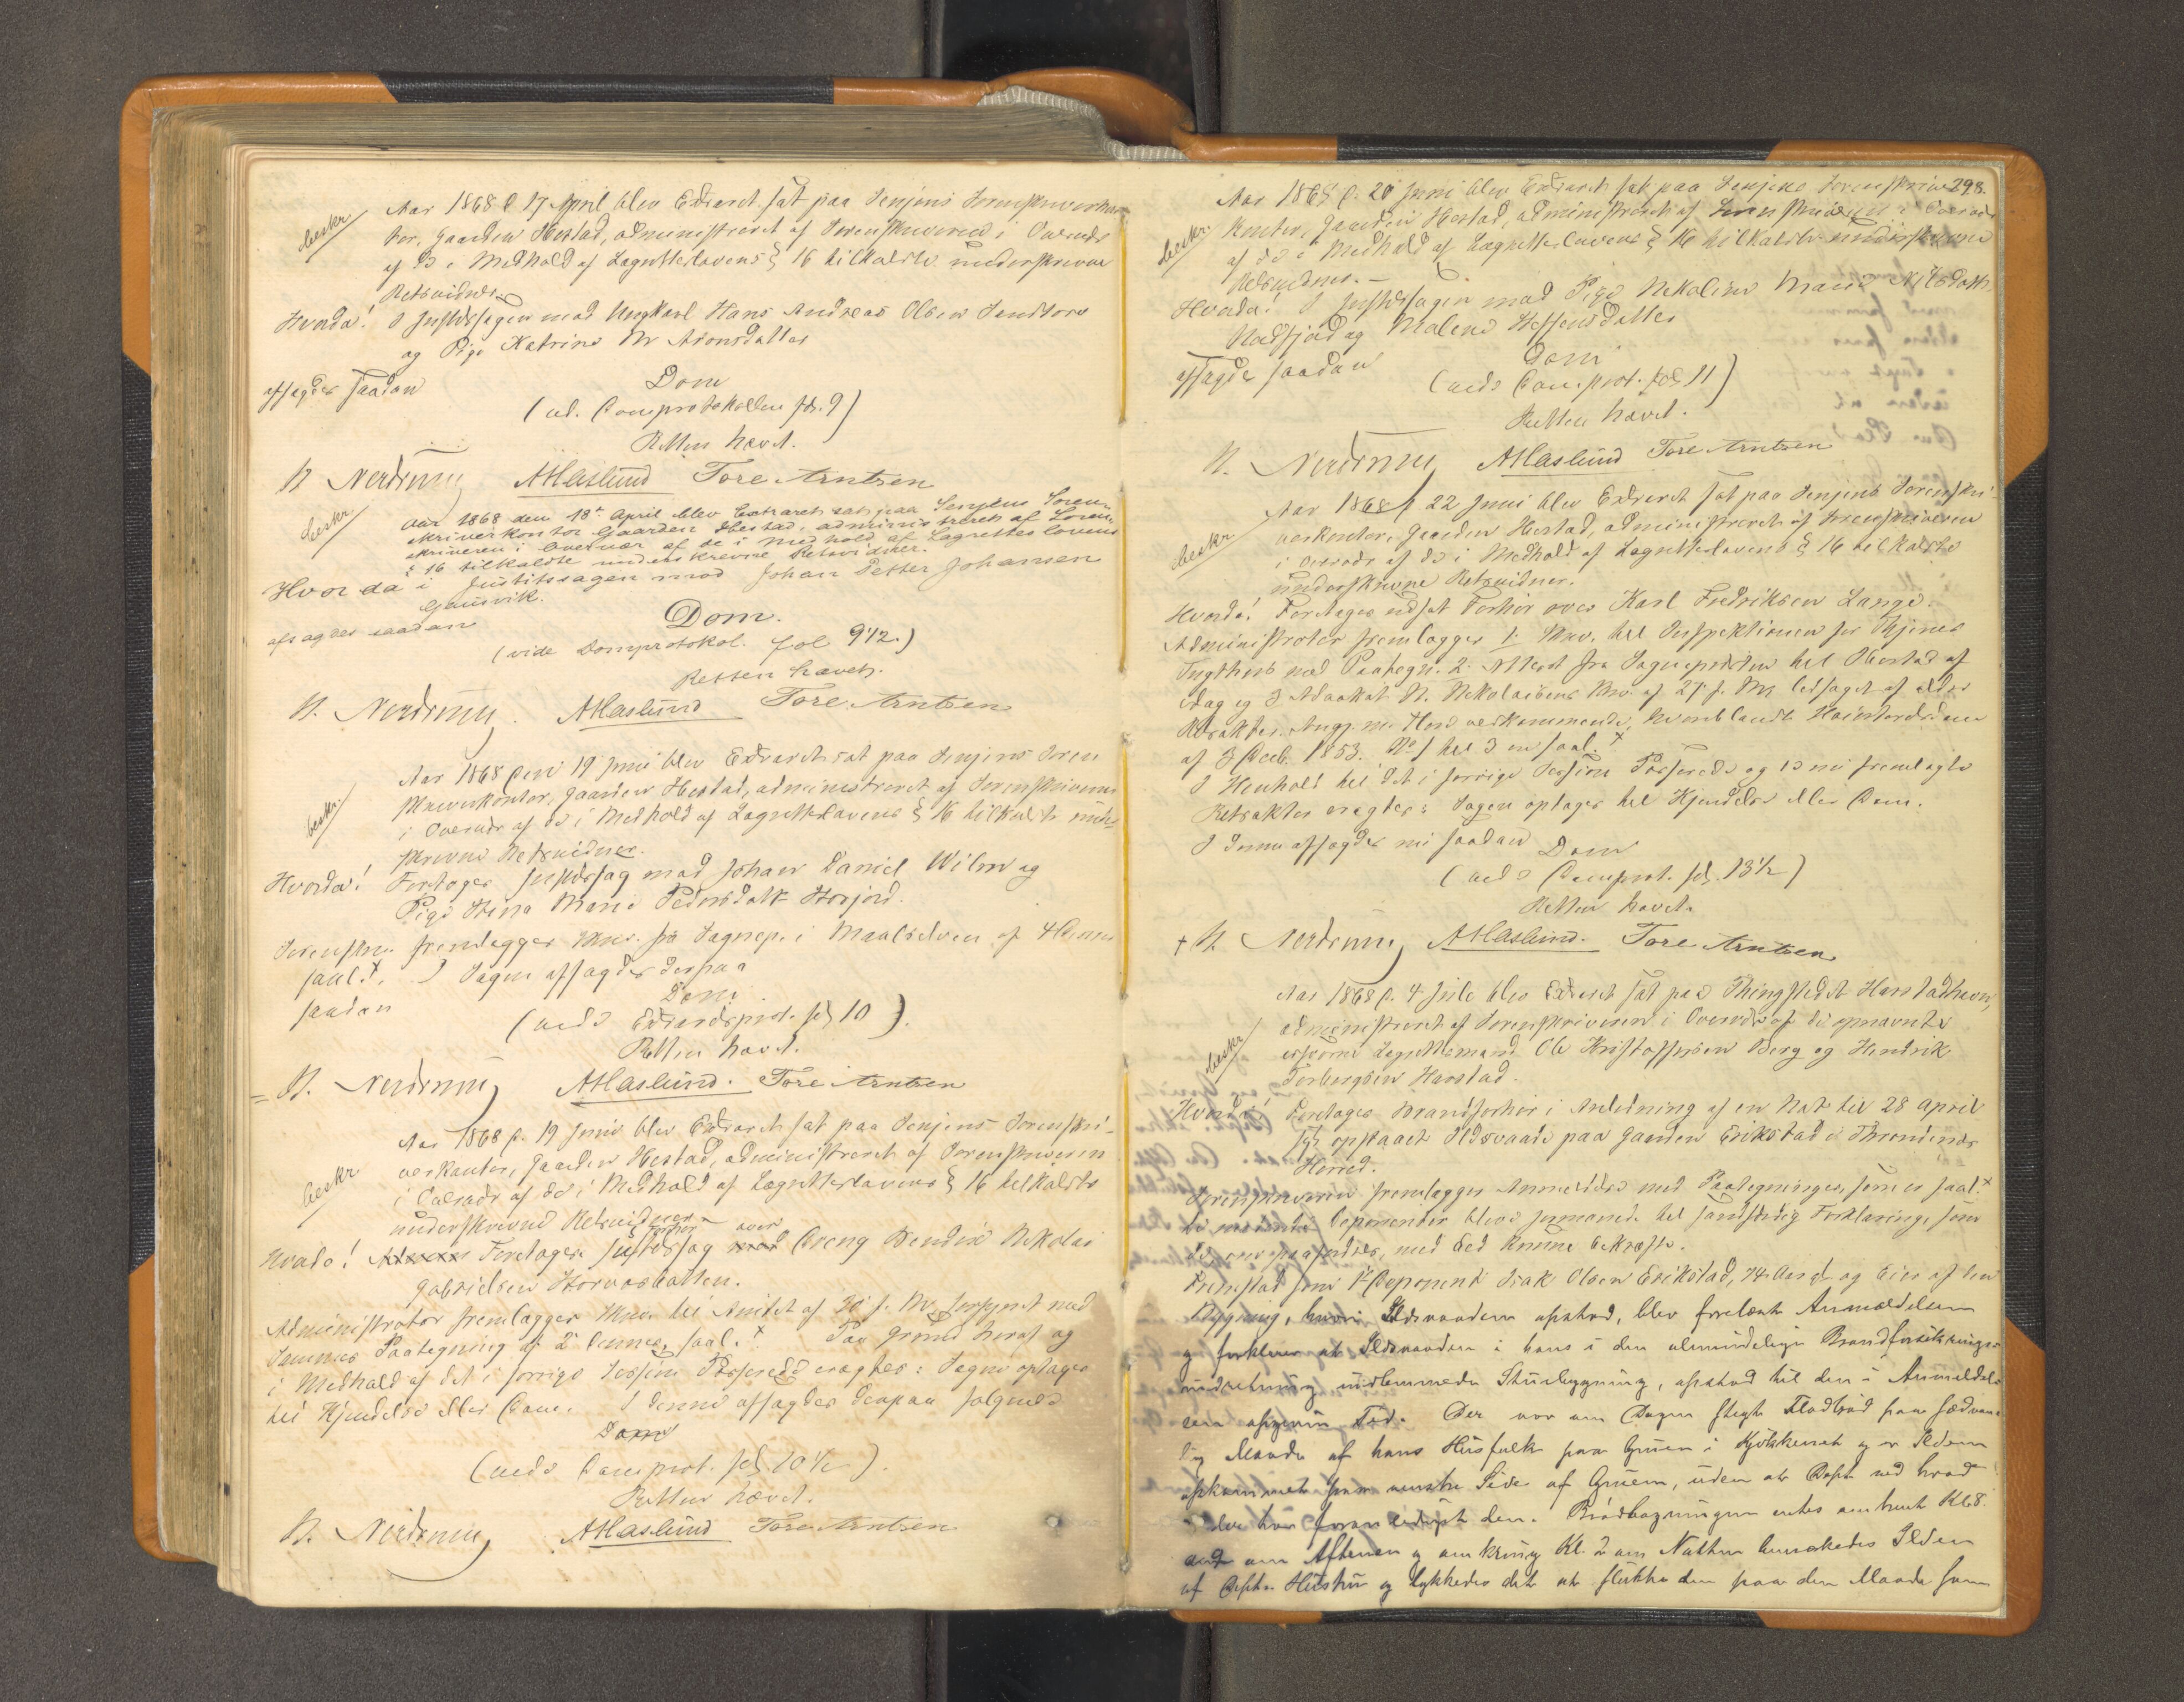 Aar 1868 d 17 April blev Extraret sat paa Senjens Sorenskriverkon
beskr
tor, Gaarden Ibestad, administreret af Sorenskriveren i Overvær
af de i Medhold af Lagrettelovens § 16 tilkaldte underskrevne
Retsvidner.
Hvorda! I Justitssagen mod Ungkarl Hans Andreas Olsen
og Pige Katrine M Aronsdatter
afsagdes saadan
Dom
(vid. Domprotokollen fol. 9)
Retten hævet.
N Nerdrum AHaslund Tore Arntzen
beskr.
Aar 1868 den 18de April blev Extraret sat paa Senjens Soren-
skriverkontor Gaarden Ibestad, administreret af Soren-
skriveren i Overvær af de i Medhold af Lagrettes lovens
§ 16 tilkaldte underskrevne Retsvidner.
Hvor da i Justitssagen mod Johan Petter Johansen
Gausvik.
afsagdes saadan
Dom.
(vide Domprotokol. fol 9 1/2.)
Retten hævet.
N. Nerdrum. AHaslund Tore Arntzen
Aar 1868 den 19 Juni blev Extraret sat paa Senjens Soren
beskr.
skriverkontor, Gaarden Ibestad, administreret af Sorenskriveren
i Overvær af de i Medhold af Lagrettelovens § 16 tilkaldte under-
skrevne Retsvidner.
Hvorda! Foretages Justitssag mod Johan Daniel og
Pige Maria Pedersdatt
Sorenskr. fremlægger Skr. fra Sognep. i Maalselven af 4
saal. x. I Sagen afsagdes derpaa
saadan
Dom
(vide Extraretsprot. fol 10).
Retten hævet.
= N. Nerdrum AHaslund. Tore Arntzen
Aar 1868 d. 19 Juni blev Extraret sat paa Senjens Sorenskri-
beskr
verkontor, Gaarden Ibestad, administreret af Sorenskriveren
i Overvær af de i Medhold af Lagrettelovens § 16 tilkaldte
underskrevne Retsvidner
Forhør over
Hvorda! Foretages Justitssag mod Dreng Bendix Nikolai
Gabrielsen
Administrator fremlægger Skr. til Amtet af 20 f. M. forsynet med
Sammes Paategning af 2 dennes, saal. x Paa Grund heraf og
i Medhold af det i forrige Session Passerede eragtes: Sagen optages
til Kjendelse eller Dom. I denne afsagdes derpaa følgende
Dom
(vide Domprot. fol 10 1/2).
Retten hævet.
N. Nerdrum, AHaslund Tore Arntzen
298.
Aar 1868 d. 20 Juni blev Extraret sat paa Senjens Sorenskriver
beskr
kontor, Gaarden Ibestad, administreret af Sorenskriveren i Overvær
af de i Medhold af Lagrettelovens § 16 tilkaldte underskrevne
Retsvidner.-
Hvorda! I Justitssagen mod Pige Nekoline Maria Nilsdatt.
og Malene
afsagdes saadan
Dom
(vide Dom.prot. fol 11)
Retten hævet.
N. Nerdrum AHaslund Tore Arntzen
Aar 1868 d 22 Juni blev Extraret sat paa Senjens Sorenskri-
beskr
verkontor, Gaarden Ibestad, administreret af Sorenskriveren
i Overvær af de i Medhold af Lagrettelovens § 16 tilkaldte
underskrevne Retsvidner.
Hvorda! Foretages udsat Forhør over Karl Fredriksen Lange.
Administrator fremlægger 1. Skr. til Inspektionen for Thjems
Tugthus med Paategn. 2. Attest fra Sognepresten til Ibestad af
idag og 3 Advokat N. Nikolaisens Skr. af 27 f. M. ledsaget af ældre
Retsakter, hvoriblandt
af 3 Decb. 1853. No 1 til 3 er saal. x
I Henhold til det i forrige Session Passerede og de nu fremlagte
Retsakter eragtes: Sagen optages til Kjendelse eller Dom.
I denne afsagdes nu saadan
Dom
(vide Domprot. fol. 13 1/2)
Retten hævet.
+ N. Nerdrum, AHaslund. Tore Arntzen
Aar 1868 d. 4 Juli blev Extraret sat paa Thingstedet Harstadhavn,
administreret af Sorenskriveren i Overvær af de opnævnte
beskr
edsvorne Lagrettemænd Ole Kristoffersen Berg og Hendrik
Torbergsen Harstad.
Hvorda! Foretages Brandforhør i Anledning af en Nat til 28 April
sidstl. opstaaet Ildsvaade paa Gaarden Erikstad i Throndenæs
Herred.
Sorenskriveren fremlægger Anmeldelse med Paategninger, som er saal. x
De Deponenter bleve formanede til sandfærdig Forklaring, som
de, om paafordres, med Eed kunne bekræfte.
Fremstod som 1te Deponent Isak Olsen Erikstad, 74 Aar gl. og Eier af den
Bygning, hvori Ildsvaaden opstod, blev forelæst Anmeldelsen
og forklarer at Ildsvaaden i hans i den almindelige Brandforsikrings
indretning indlemmede Stuebygning, opstod til den i Anmeldel-
sen opgivne Tid. Der var om Dagen stegt Fladbrød paa sædvan-
lig Maade af hans Husfolk paa Gruen i Kjøkkenet og er Ilden
opkommet paa venstre Side af Gruen, uden at Dept. ved hvad
der har foranlediget den. Brødbagningen endte omtrent Kl. 8.
om Aftenen og omkring Kl. 2 om Natten bemærkedes Ilden
af Depts. Hustru og lykkedes det at slukke den paa den Maade som